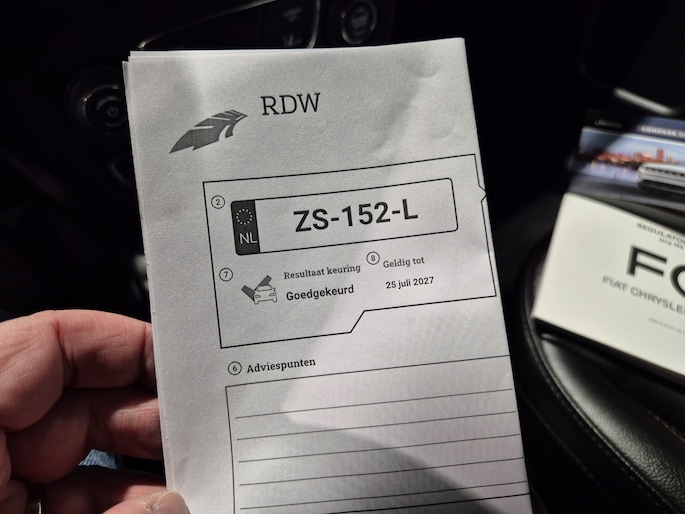 RDW
2
NL
ZS-152-L
7
Resultaat keuring
Goedgekeurd
8
Geldig tot
25 juli 2027
6 Adviespunten
REGULATOR
FC
FIAT CHRYSLER